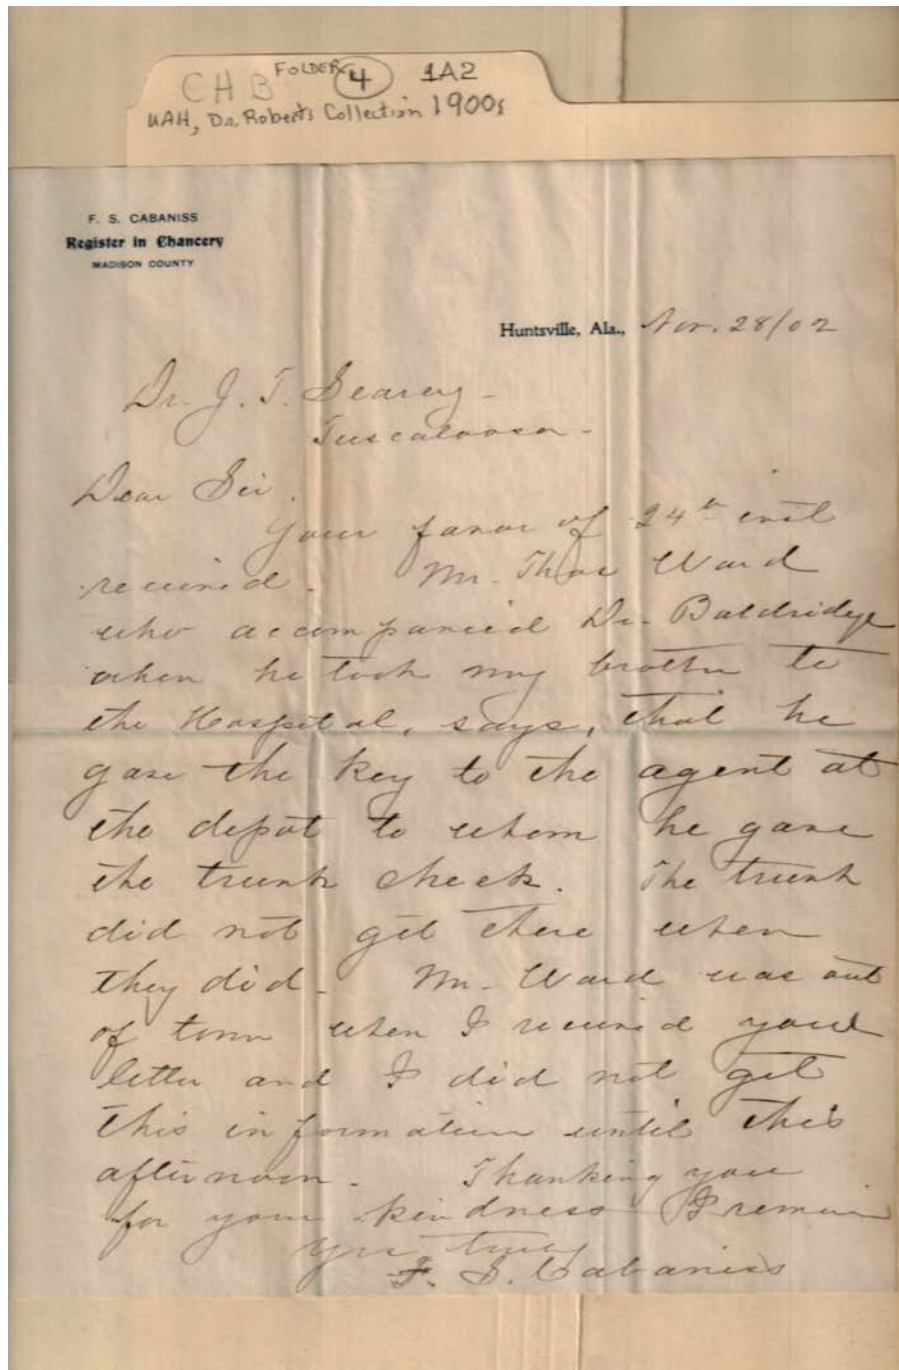 CHB FOLDER 4 1A2
UAH, Dr. Roberts Collection 1900s
F. S. CABANISS
Register in Chancery
MADISON COUNTY
Huntsville, Ala., Nov. 28/02
Dr. J. T. Searcy -
Tuscaloosa -
Dear Sir,
Your favor of 24th inst
received. Mr. Thos Ward
who accompanied Dr. Baldridge
when he took my brother to
the Hospital, says, that he
gave the key to the agent at
the depot to whom he gave
the trunk check. The trunk
did not get there when
they did - Mr. Ward was out
of town when I received your
letter and I did not get
this information until this
afternoon - Thanking you
for your kindness I remain
Yrs truly
F. S. Cabaniss